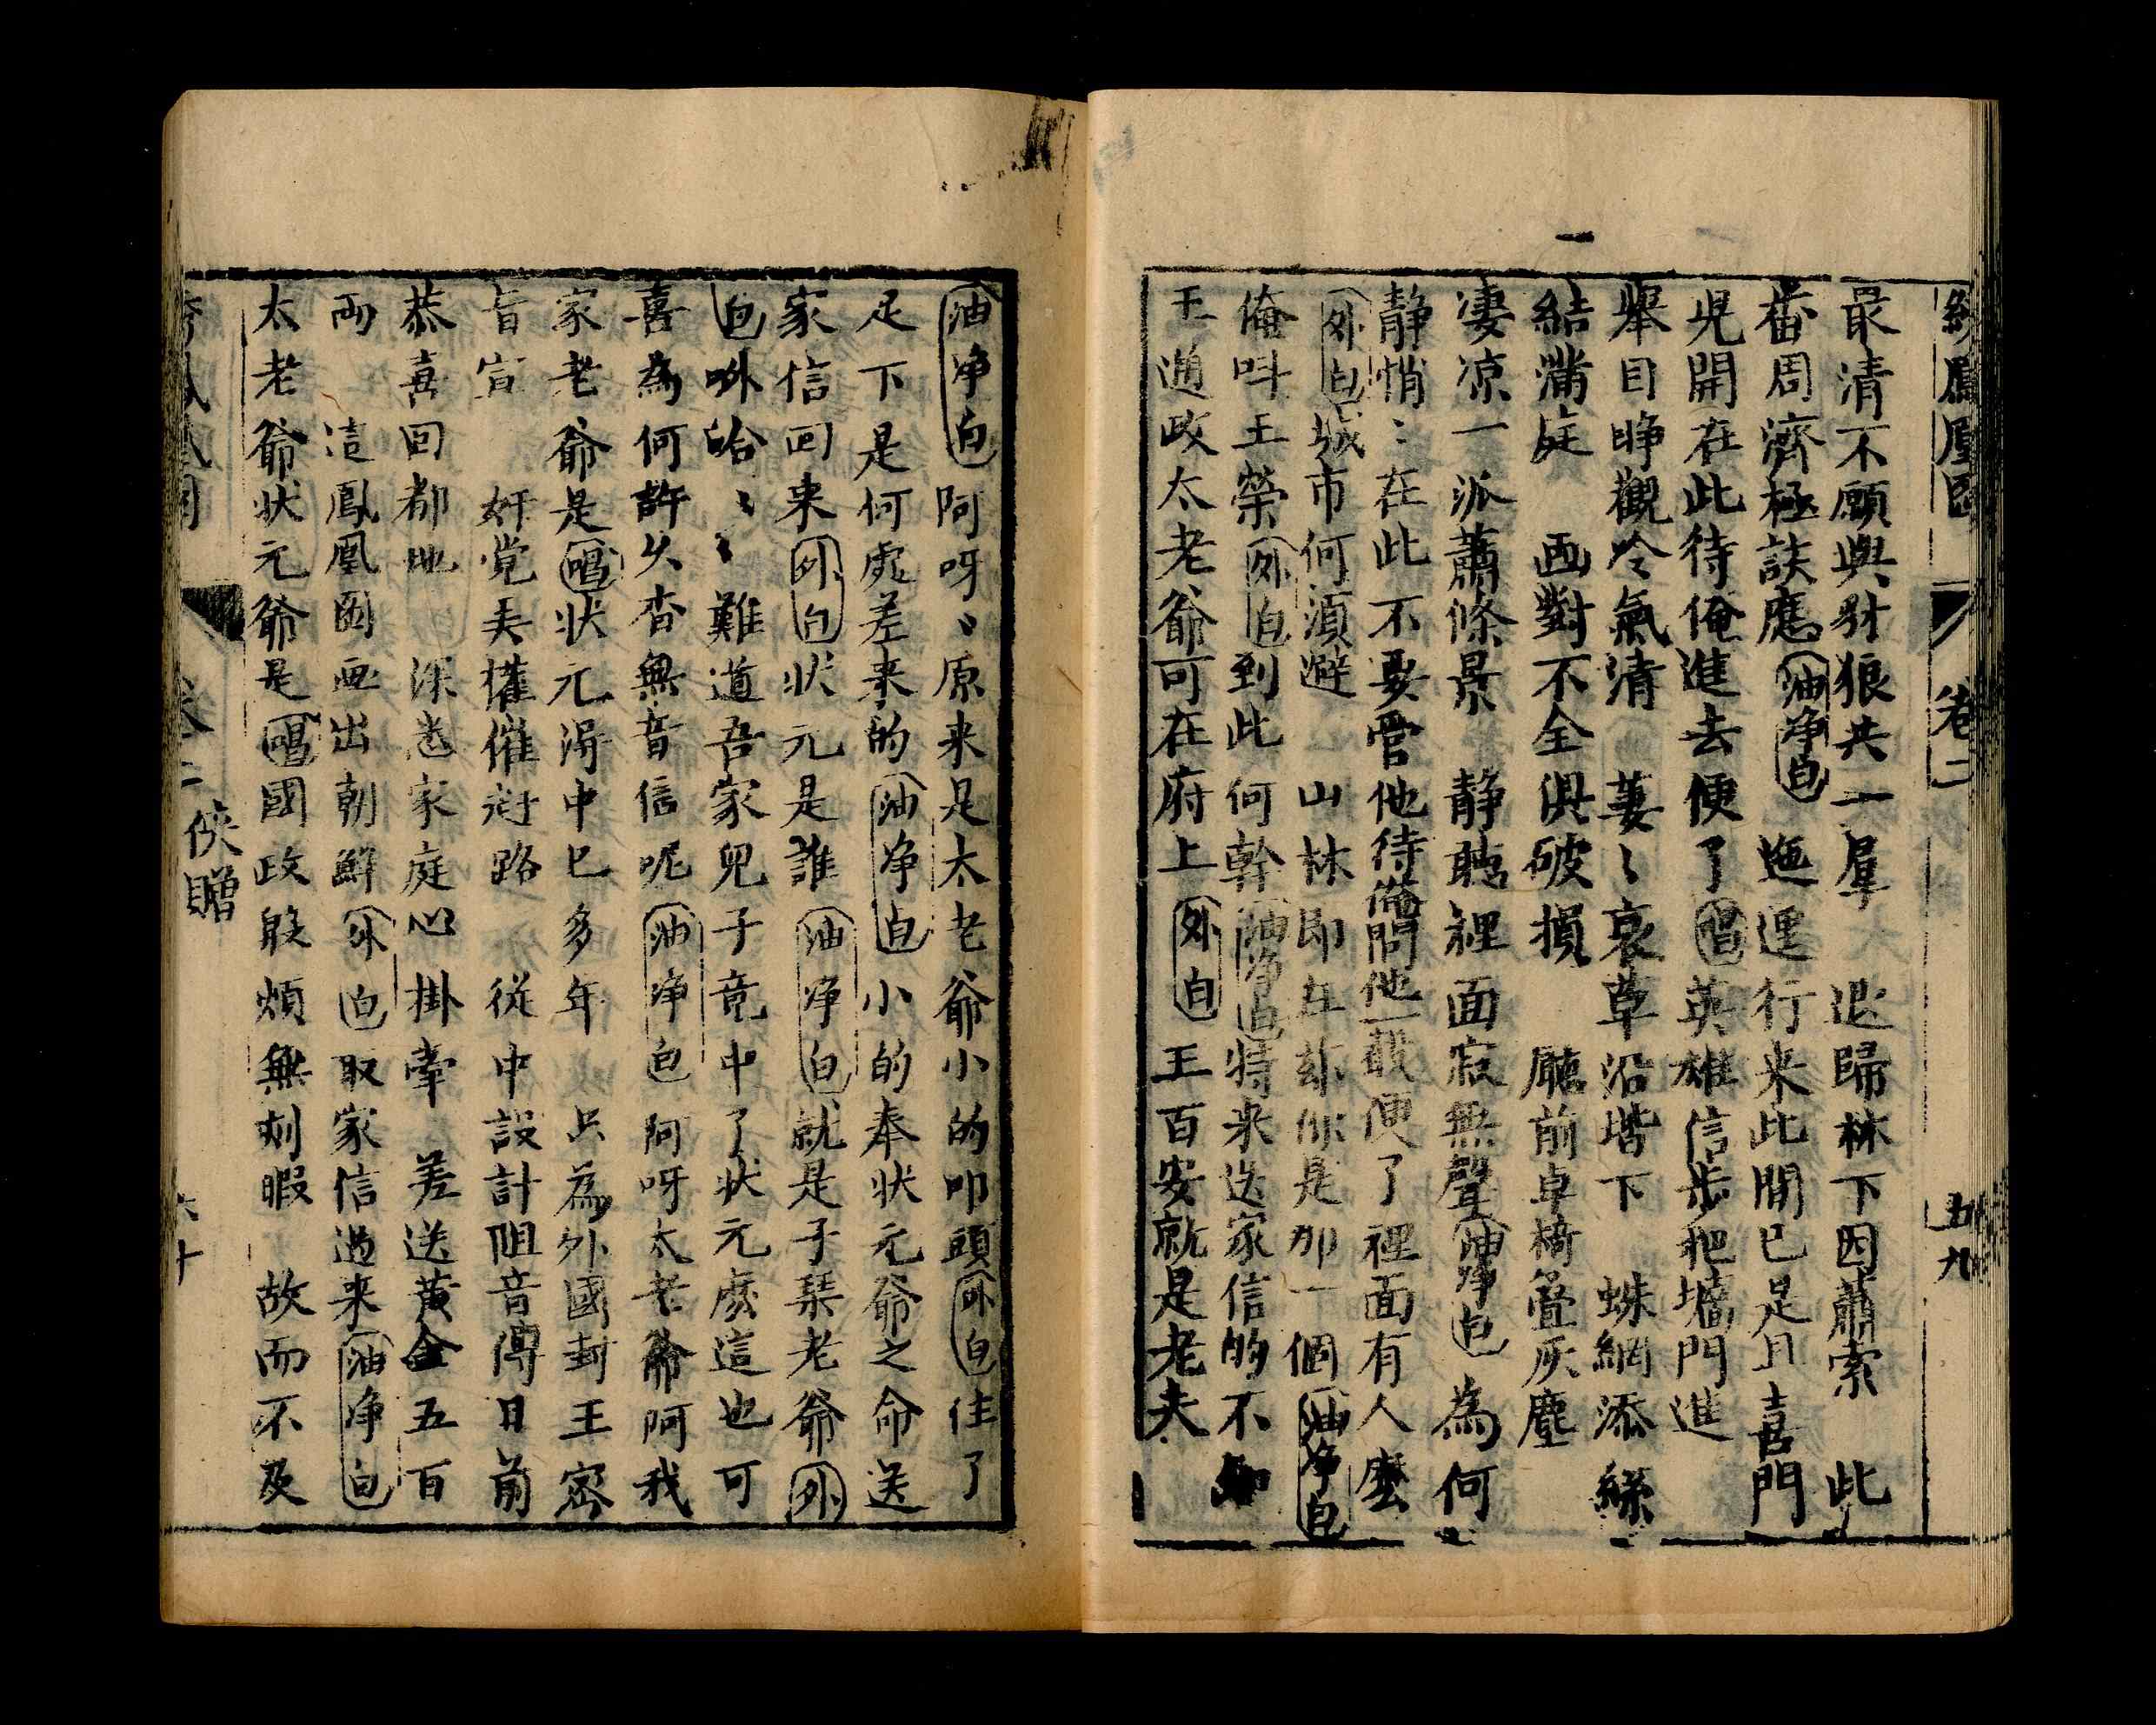 卷二 五九
最清不願與豺狼共一羣 退歸林下因蕭索 此
番周濟極該應油净白 迤逦行来此間已是且喜門
児開在此待俺進去便了唱英雄信步把墻門進
舉目睁觀冷氣清 萋〻哀草沿堦下 蛛網添絲
結滿庭 画對不全俱破損 廳前卓椅叠灰塵
凄凉一派蕭條景 静聴裡面寂無聲油净白 為何
静悄〻在此不要管他待俺問他一截便了裡面有人麽
外白城市何須避 山林即在兹你是那一個油净白
俺叫王榮外白到此何幹油净白特来送家信的不知
王通政太老爺可在府上外白 王百安就是老夫
油净白阿呀〻原来是太老爺小的叩頭外白住了
足下是何處差来的油净白小的奉状元爺之命送
家信回来外白状元是誰油净白就是子琹老爺外
白咻哈〻〻難道吾家兒子竟中了状元麽這也可
喜為何許久杳無音信呢油净白阿呀太老爺阿我
家老爺是唱状元淂中已多年 只為外國封王密
旨宣 奸党夫權催赴路 從中設計阻音傳日前
恭喜回都地 深悉家庭心掛牽 差送黄金五百
両 這鳳凰圖画出朝鮮外白取家信過来油净白
太老爺状元爺是唱國政殷煩無刻暇 故而不及
卷二 俠贈 六十